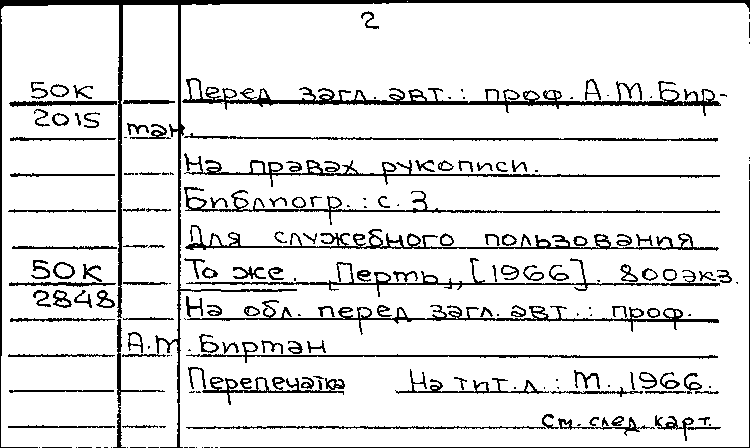 2
50К Перед загл. авт.: проф. А.М.Бир-
2015 ман.
На правах рукописи.
Библиогр.: с. 3.
Для служебного пользования
50К То же. „Пермь„, [1966]. 800экз.
2848 На обл. перед загл. авт.: проф.
А.М. Бирман
Перепечатка На тит. л.: М., 1966.
См. след. карт.